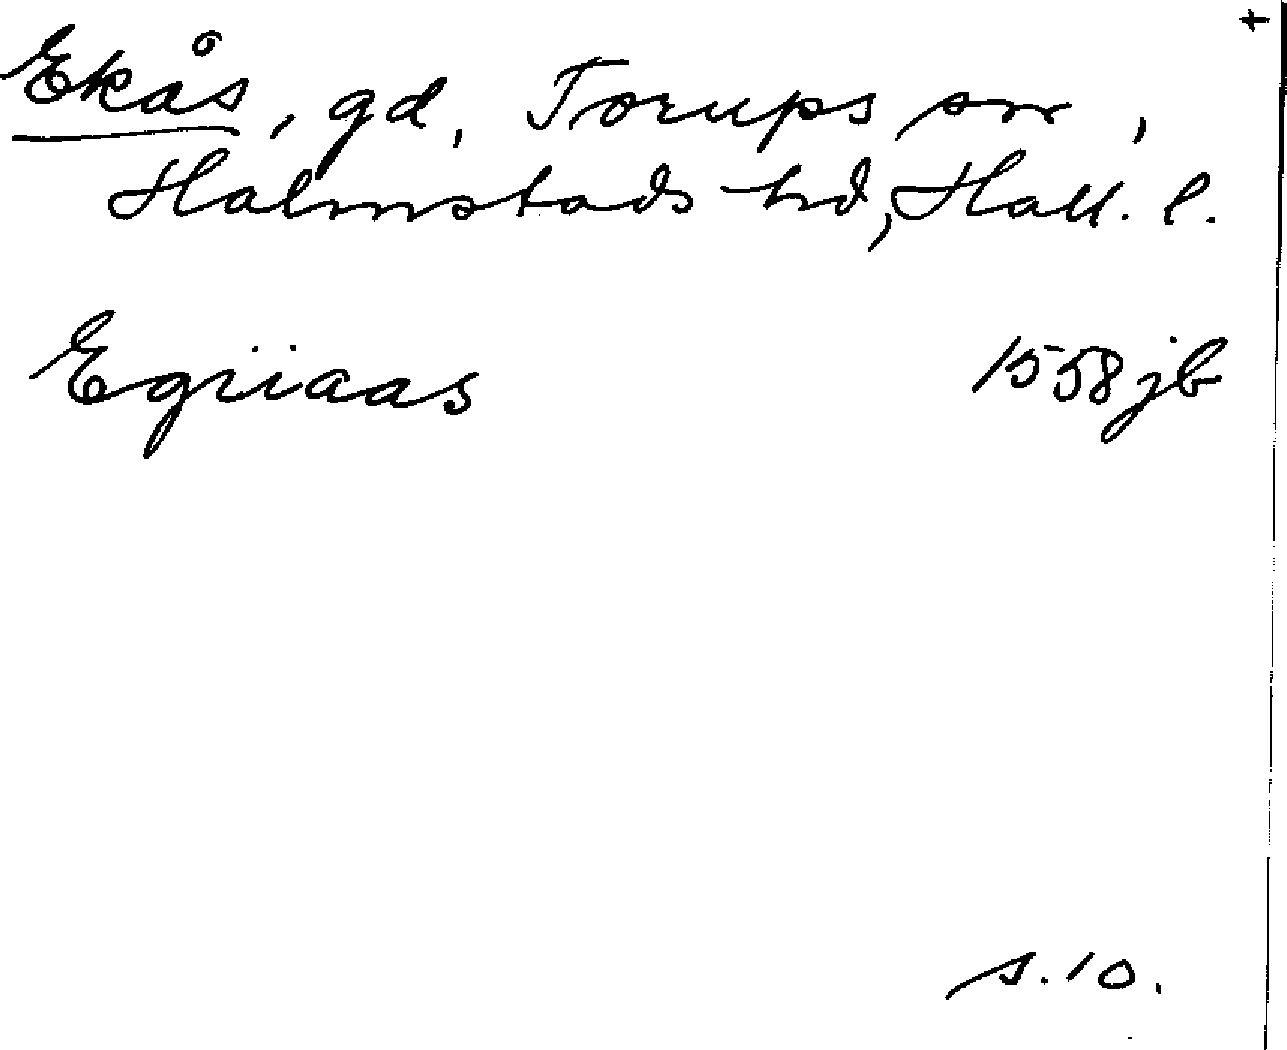 +
Ekås, gd, Torups sn,
Halmstads hd, Hall. l.
Egiiaas 1558 jb
s. 10.